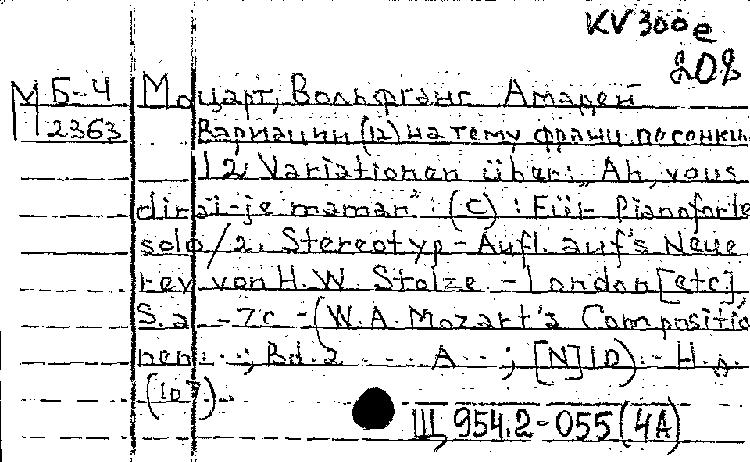 KV 300e
208
М Б-4 Моцарт, Вольфганг Амадей
2363 Вариации (12) на тему франц. песенки
12 Variationen über: „Ah, vous
dirai-je maman" : (C) : Für Pianoforte
solo / 2. Stereotyp-Aufl. auf's Neue
rev von H. W. Stolze. - London [etc],
S.a. - 7c - (W. A. Mozart's Compositio
nen...; Bd. 2 ... A..; [N] 10). - Н.д.
(10³).
Щ 954.2-055(4А)